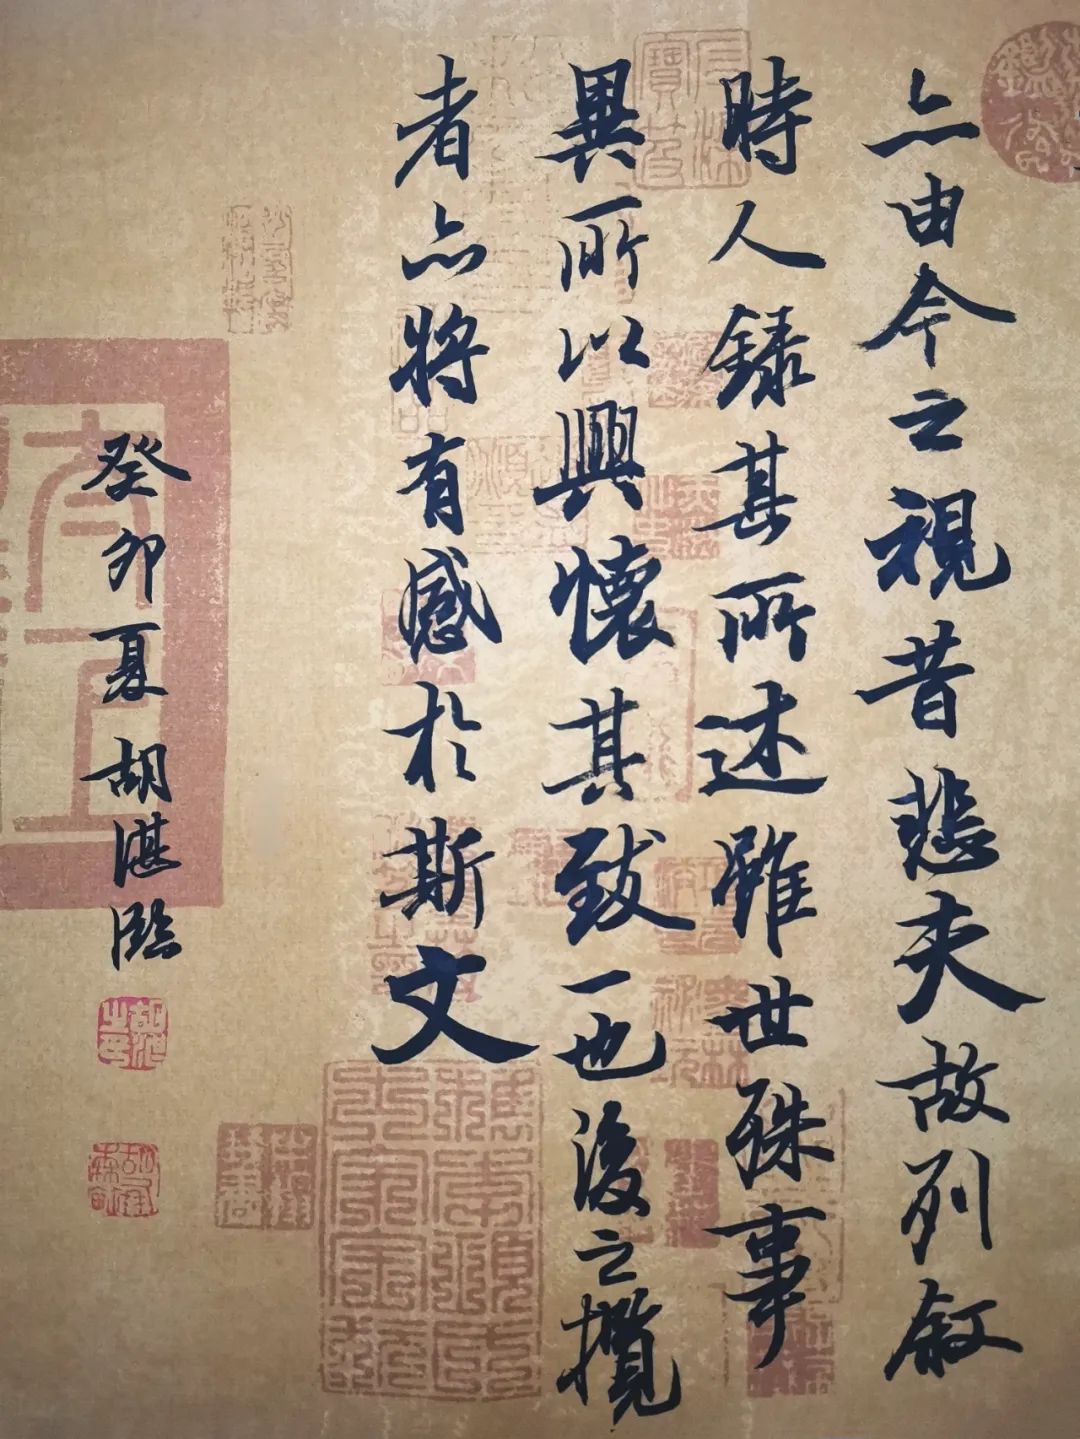 亦由今之視昔悲夫故列叙
時人録其所述雖世殊事
異所以興懷其致一也後之攬
者亦將有感於斯文
癸卯夏胡湛臨